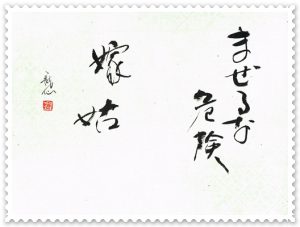 まぜるな
危険
嫁姑